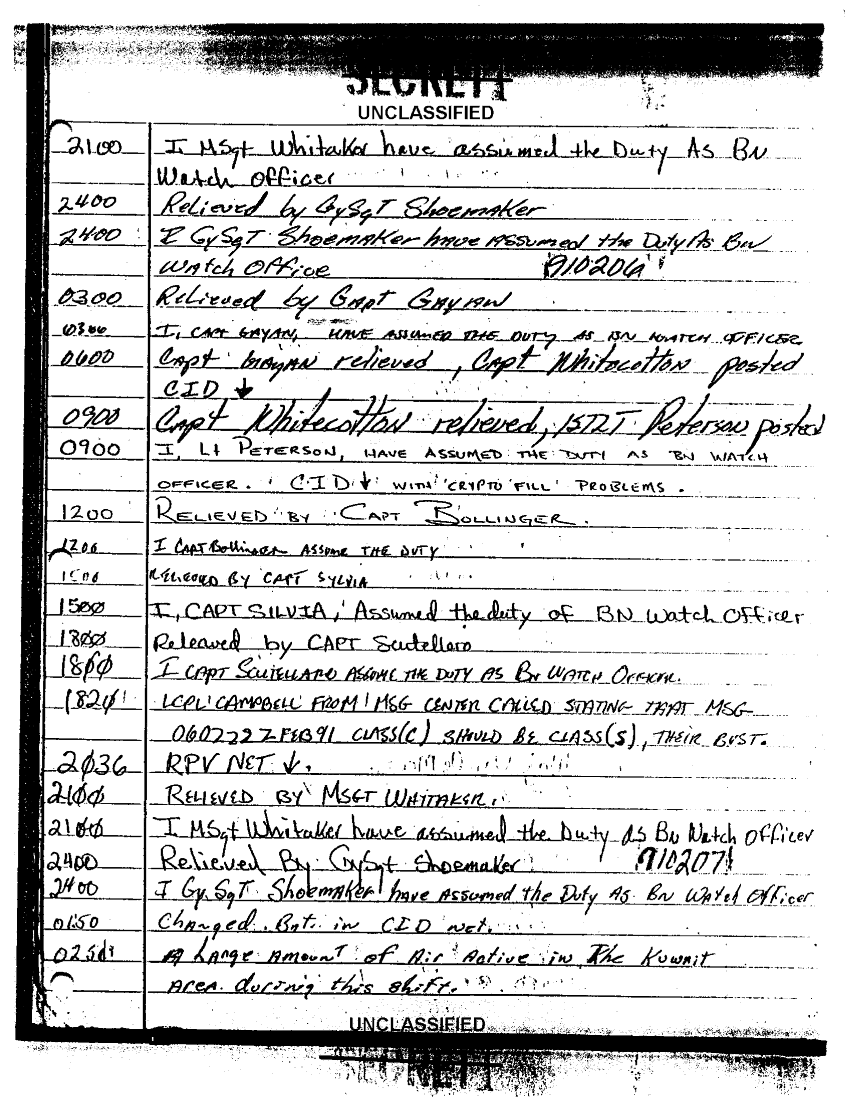 SECRET
UNCLASSIFIED
2100 I MSgt Whitaker have assumed the Duty As BN
Watch Officer
2400 Relieved by GySgt Shoemaker
2400 I GySgt Shoemaker have assumed the Duty As BN
Watch Office 910206
0300 Relieved by Capt Gayan
0300 I, CAPT GAYAN, HAVE ASSUMED THE DUTY AS BN WATCH OFFICER
0600 Capt GAYAN relieved, Capt Whitecotton posted
CID ↓
0900 Capt Whitecotton relieved, 1STLT Peterson posted
0900 I, Lt PETERSON, HAVE ASSUMED THE DUTY AS BN WATCH
OFFICER. CID ↓ WITH 'CRYPTO FILL' PROBLEMS.
1200 RELIEVED BY CAPT BOLLINGER.
1200 I CAPT Bollinger ASSUME THE DUTY
1500 RELIEVED BY CAPT SYLVIA
1500 I, CAPT SILVIA, Assumed the duty of BN Watch Officer
1800 Releaved by CAPT Scutellaro
1800 I CAPT SCUTELLARO ASSUME THE DUTY AS BN WATCH OFFICER.
1820 LCPL CAMPBELL FROM MSG CENTER CALLED STATING THAT MSG
060222Z FEB91 CLASS(C) SHOULD BE CLASS(S), THEIR BUST.
2036 RPV NET ↓.
2100 RELIEVED BY MSGT WHITAKER.
2100 I MSgt Whitaker have assumed the Duty as BN Watch Officer
2400 Relieved By GySgt Shoemaker 910207
2400 I GySgt Shoemaker have assumed the Duty As BN Watch Officer
0150 Changed Bat. in CID net.
A Large Amount of Air Active in The Kuwait
Area during this shift.
UNCLASSIFIED